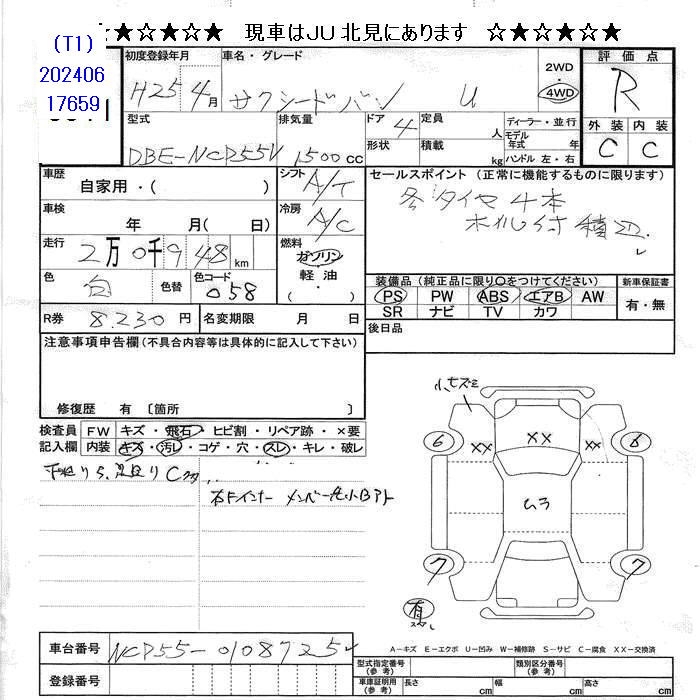 ☆★☆★☆ 現車はJU北見にあります ☆★☆★☆
(T1)
202406
17659
初度登録年月
H25年 4月
車名・グレード
サクシードバン U
2WD
・
4WD
評価点
R
型式
DBE-NCP55V
排気量
1500cc
ドア
4
形状
定員
人
積載
kg
ディーラー・並行
モデル年式 年
ハンドル 左・右
外装
C
内装
C
車歴
自家用・( )
シフト
A/T
セールスポイント (正常に機能するものに限ります)
冬タイヤ4本
ホイル付 積辺
車検
年 月( 日)
冷房
A/C
走行
2万0千948km
燃料
ガソリン
・
軽油
・
( )
色
白
色替
色コード
058
装備品 (純正品に限り○をつけてください)
PS PW ABS エアB AW
SR ナビ TV カワ
新車保証書
有・無
R券 8.230円
名変期限 月 日
後日品
注意事項申告欄(不具合内容等は具体的に記入して下さい)
修復歴 有 〔箇所 〕
検査員記入欄
FW キズ・飛石・ヒビ割・リペア跡・×要
内装 キズ・汚レ・コゲ・穴・スレ・キレ・破レ
下廻りS、足廻りC
小キズミ
6
××
××
××
8
ムラ
7
7
有
A-キズ E-エクボ U-凹み W-補修跡 S-サビ C-腐食 XX-交換済
車台番号
NCP55-0108725
登録番号
型式指定番号(参考)
類別区分番号(参考)
車庫証明用(参考)
長さ cm
幅 cm
高さ cm